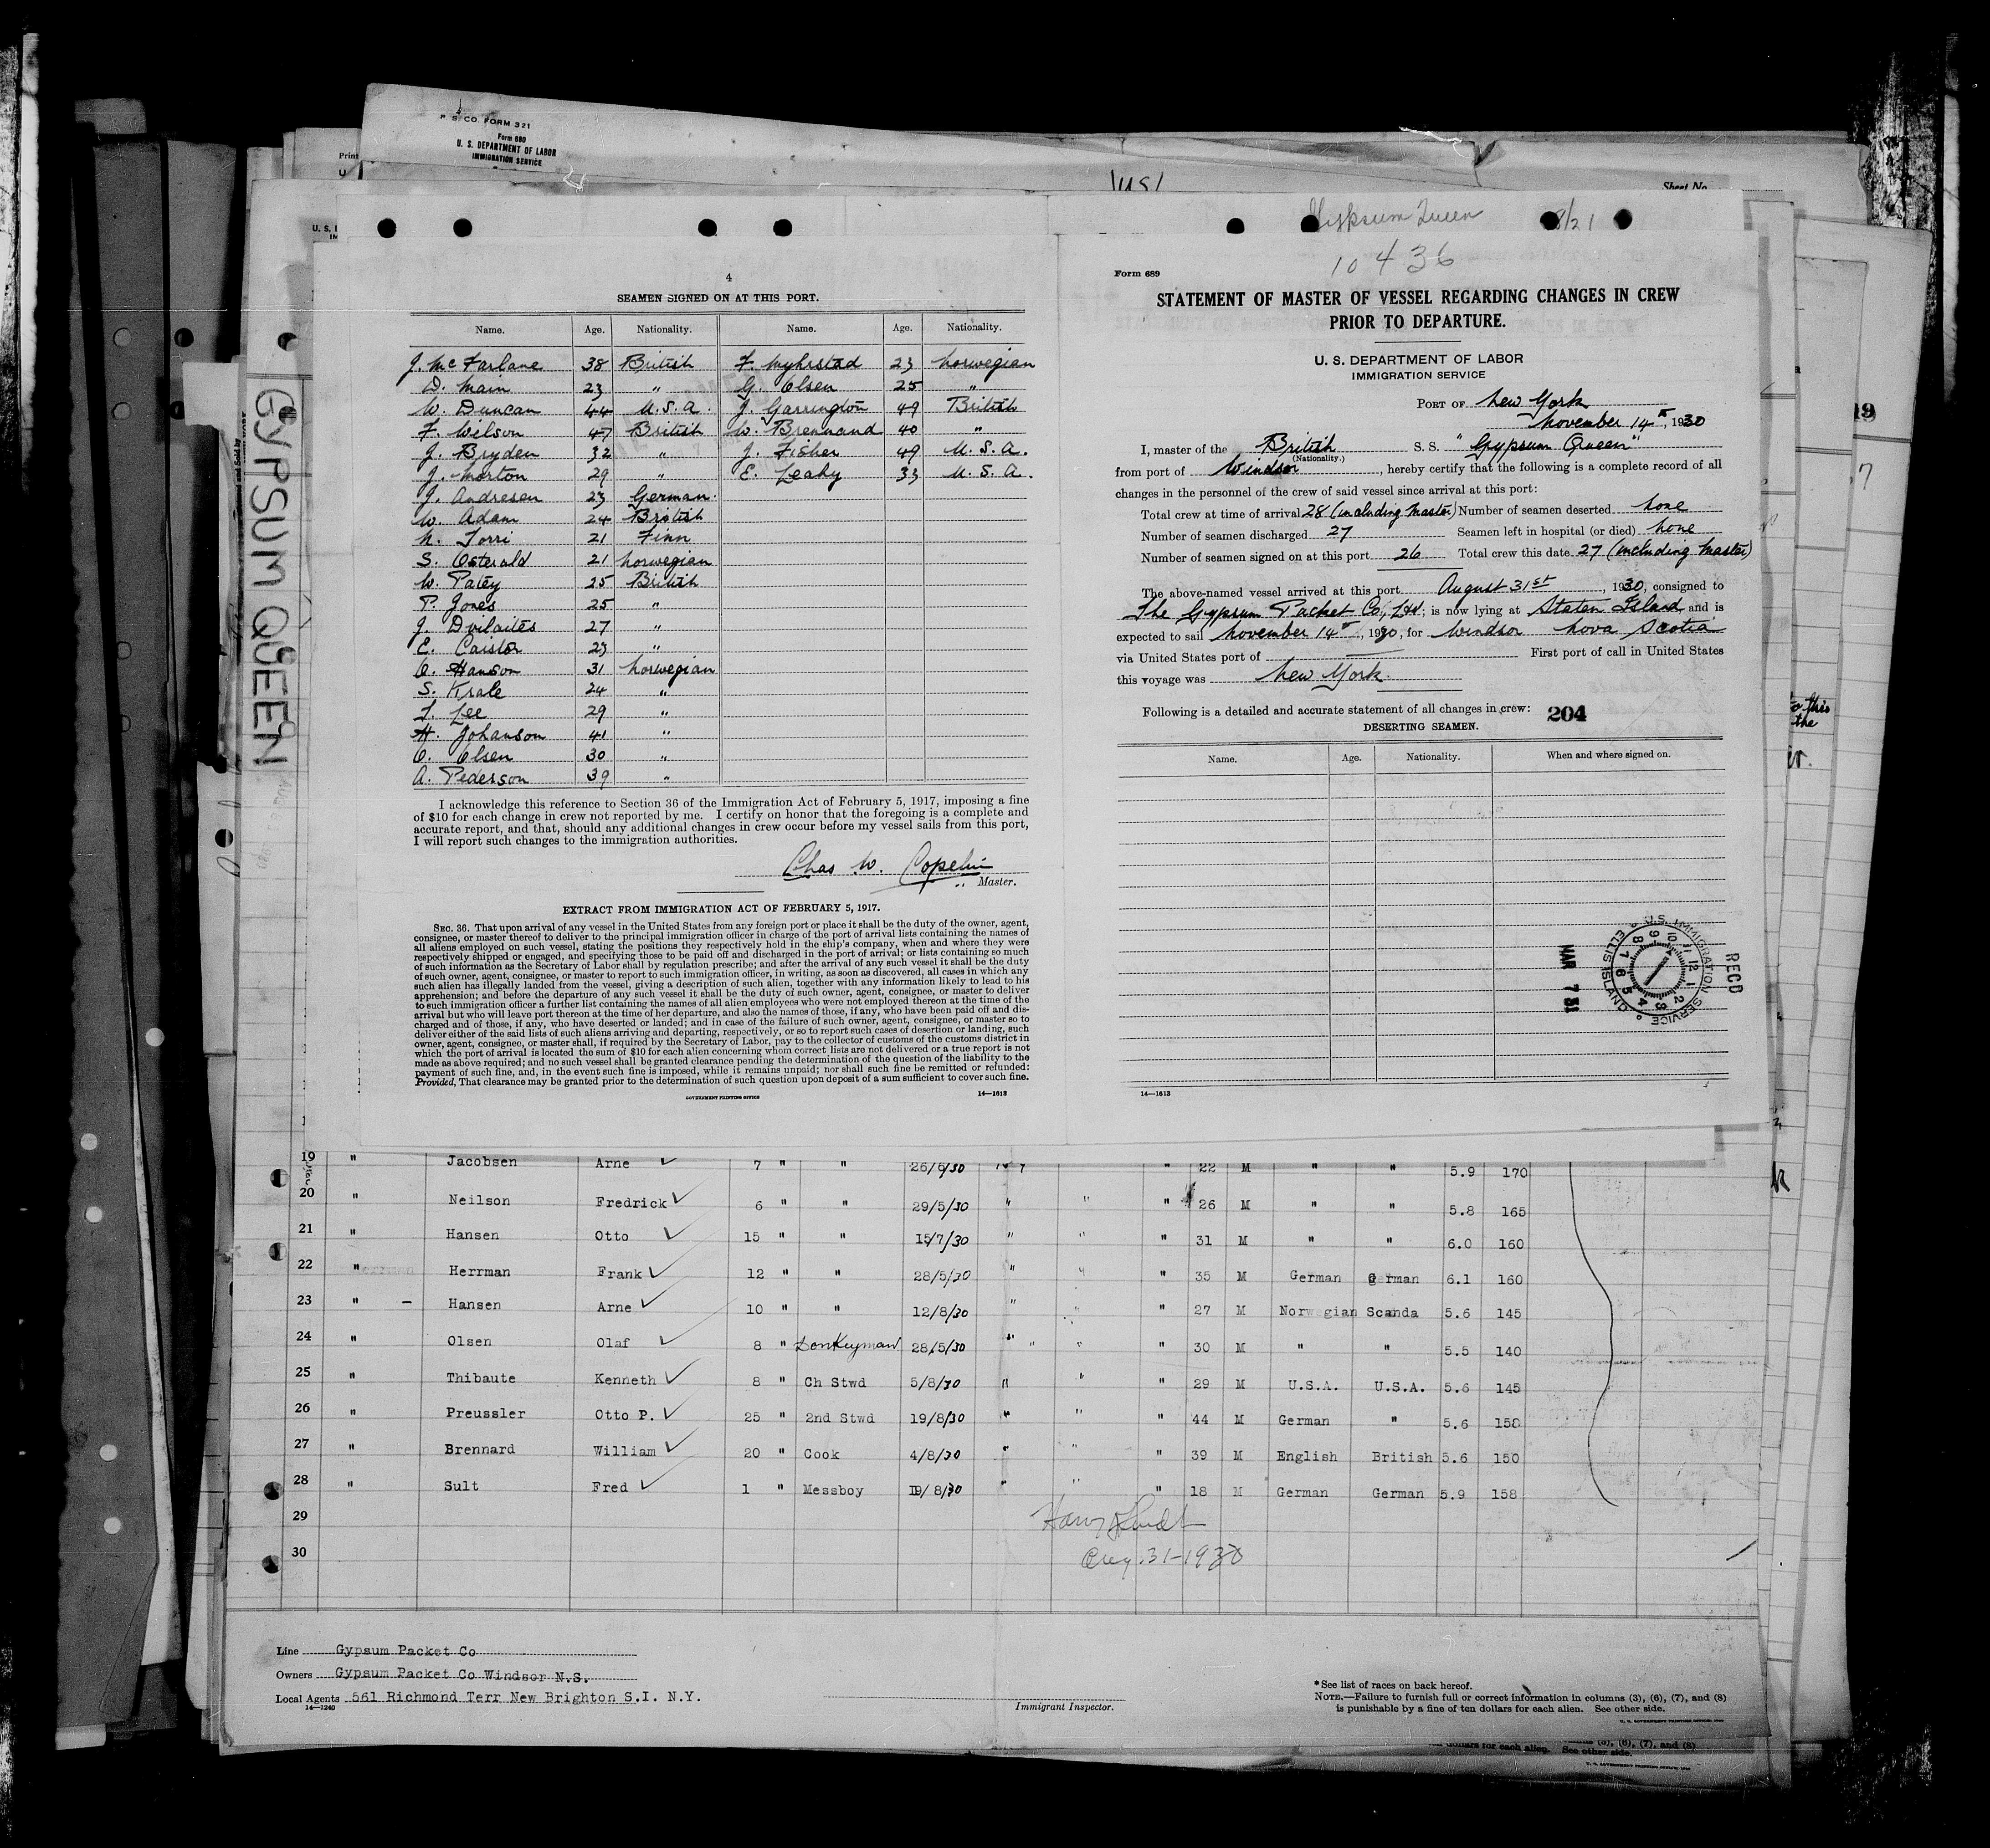 P. S. CO. FORM 321
Form 680
U. S. DEPARTMENT OF LABOR
IMMIGRATION SERVICE
Print
U
Sheet No.
U. S. I
IM
Gypsum Queen 8/21
GYPSUM QUEEN
4
SEAMEN SIGNED ON AT THIS PORT.
Name. Age. Nationality. Name. Age. Nationality.
J. McFarlane 38 British F. Myhrstad 23 Norwegian
D. Main 23 " G. Olsen 25 "
W. Duncan 44 U.S.A. J. Garrington 49 British
F. Wilson 47 British W. Brennand 40 "
J. Bryden 32 " J. Fisher 49 U.S.A.
J. Morton 29 " E. Leahy 33 U.S.A.
J. Andresen 23 German.
W. Adam 24 British
N. Torri 21 Finn
S. Osterald 21 Norwegian
W. Patey 25 British
P. Jones 25 "
J. Dvilaites 27 "
E. Caistor 23 "
O. Hanson 31 Norwegian
S. Krale 24 "
T. Lee 29 "
H. Johanson 41 "
O. Olsen 30 "
A. Pederson 39 "
I acknowledge this reference to Section 36 of the Immigration Act of February 5, 1917, imposing a fine
of $10 for each change in crew not reported by me. I certify on honor that the foregoing is a complete and
accurate report, and that, should any additional changes in crew occur before my vessel sails from this port,
I will report such changes to the immigration authorities.
Chas W. Copelin
Master.
EXTRACT FROM IMMIGRATION ACT OF FEBRUARY 5, 1917.
SEC. 36. That upon arrival of any vessel in the United States from any foreign port or place it shall be the duty of the owner, agent,
consignee, or master thereof to deliver to the principal immigration officer in charge of the port of arrival lists containing the names of
all aliens employed on such vessel, stating the positions they respectively hold in the ship's company, when and where they were
respectively shipped or engaged, and specifying those to be paid off and discharged in the port of arrival; or lists containing so much
of such information as the Secretary of Labor shall by regulation prescribe; and after the arrival of any such vessel it shall be the duty
of such owner, agent, consignee, or master to report to such immigration officer, in writing, as soon as discovered, all cases in which any
such alien has illegally landed from the vessel, giving a description of such alien, together with any information likely to lead to his
apprehension; and before the departure of any such vessel it shall be the duty of such owner, agent, consignee, or master to deliver
to such immigration officer a further list containing the names of all alien employees who were not employed thereon at the time of the
arrival but who will leave port thereon at the time of her departure, and also the names of those, if any, who have been paid off and dis-
charged and of those, if any, who have deserted or landed; and in case of the failure of such owner, agent, consignee, or master so to
deliver either of the said lists of such aliens arriving and departing, respectively, or so to report such cases of desertion or landing, such
owner, agent, consignee, or master shall, if required by the Secretary of Labor, pay to the collector of customs of the customs district in
which the port of arrival is located the sum of $10 for each alien concerning whom correct lists are not delivered or a true report is not
made as above required; and no such vessel shall be granted clearance pending the determination of the question of the liability to the
payment of such fine, and, in the event such fine is imposed, while it remains unpaid; nor shall such fine be remitted or refunded:
Provided, That clearance may be granted prior to the determination of such question upon deposit of a sum sufficient to cover such fine.
GOVERNMENT PRINTING OFFICE 14—1613
10436
Form 689
STATEMENT OF MASTER OF VESSEL REGARDING CHANGES IN CREW
PRIOR TO DEPARTURE.
U. S. DEPARTMENT OF LABOR
IMMIGRATION SERVICE
PORT OF New York
November 14th, 1930
I, master of the British S. S. "Gypsum Queen"
(Nationality.)
from port of Windsor, hereby certify that the following is a complete record of all
changes in the personnel of the crew of said vessel since arrival at this port:
Total crew at time of arrival 28 (including Master) Number of seamen deserted none
Number of seamen discharged 27 Seamen left in hospital (or died) none
Number of seamen signed on at this port 26 Total crew this date 27 (including Master)
The above-named vessel arrived at this port August 31st, 1930, consigned to
The Gypsum Packet Co., Ltd; is now lying at Staten Island and is
expected to sail November 14th, 1930, for Windsor Nova Scotia
via United States port of First port of call in United States
this voyage was New York.
Following is a detailed and accurate statement of all changes in crew: 204
DESERTING SEAMEN.
Name. Age. Nationality. When and where signed on.
U.S. IMMIGRATION SERVICE ELLIS ISLAND
RECD
MAR 7 31
14—1613
19 " Jacobsen Arne 7 " " 26/6/30 " 22 M " " 5.9 170
20 " Neilson Fredrick 6 " " 29/5/30 " " " 26 M " " 5.8 165
21 " Hansen Otto 15 " " 15/7/30 " " " 31 M " " 6.0 160
22 " Herrman Frank 12 " " 28/5/30 " " " 35 M German German 6.1 160
23 " - Hansen Arne 10 " " 12/8/30 " " " 27 M Norwegian Scanda 5.6 145
24 " Olsen Olaf 8 " Donkeyman 28/5/30 " " " 30 M " " 5.5 140
25 " Thibaute Kenneth 8 " Ch Stwd 5/8/30 " " " 29 M U.S.A. U.S.A. 5.6 145
26 " Preussler Otto P. 25 " 2nd Stwd 19/8/30 " " " 44 M German " 5.6 158
27 " Brennard William 20 " Cook 4/8/30 " " " 39 M English British 5.6 150
28 " Sult Fred 1 " Messboy 19/8/30 " " " 18 M German German 5.9 158
29
30
Aug. 31-1930
Line Gypsum Packet Co
Owners Gypsum Packet Co Windsor N.S.
Local Agents 561 Richmond Terr New Brighton S.I. N.Y.
14—1240
Immigrant Inspector.
*See list of races on back hereof.
NOTE.—Failure to furnish full or correct information in columns (3), (6), (7), and (8)
is punishable by a fine of ten dollars for each alien. See other side.